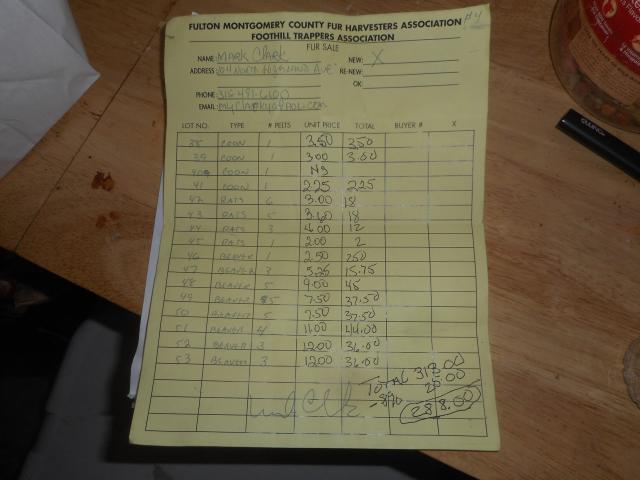 #4
FULTON MONTGOMERY COUNTY FUR HARVESTERS ASSOCIATION
FOOTHILL TRAPPERS ASSOCIATION
FUR SALE
NAME: MARK CLARK NEW: X
ADDRESS: 104 NORTH HIGHLAND AVE RE-NEW:
OK:
PHONE:
EMAIL:
LOT NO. TYPE # PELTS UNIT PRICE TOTAL BUYER # X
38 COON 1 3.50 3.50
39 COON 1 3.00 3.00
40 COON 1 NS
41 COON 1 2.25 2.25
42 RATS 6 3.00 18
43 RATS 5 3.60 18
44 RATS 3 4.00 12
45 RATS 1 2.00 2
46 BEAVER 1 2.50 250
47 BEAVER 3 5.25 15.75
48 BEAVER 5 9.00 45
49 BEAVER 5 7.50 37.50
50 BEAVER 5 7.50 37.50
51 BEAVER 4 11.00 44.00
52 BEAVER 3 12.00 36.00
53 BEAVER 3 12.00 36.00
TOTAL 313.00
25.00
288.00